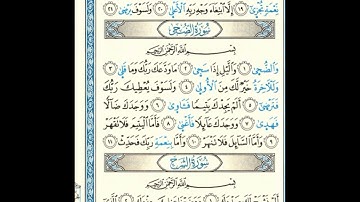 نِعْمَةٍ تُجْزَىٰ ١٩ إِلَّا ٱبْتِغَآءَ وَجْهِ رَبِّهِ ٱلْأَعْلَىٰ ٢٠ وَلَسَوْفَ يَرْضَىٰ ٢١
سُورَةُ الضُّحَىٰ
بِسْمِ ٱللَّهِ ٱلرَّحْمَٰنِ ٱلرَّحِيمِ
وَٱلضُّحَىٰ ١ وَٱلَّيْلِ إِذَا سَجَىٰ ٢ مَا وَدَّعَكَ رَبُّكَ وَمَا قَلَىٰ ٣
وَلَلْءَاخِرَةُ خَيْرٌ لَّكَ مِنَ ٱلْأُولَىٰ ٤ وَلَسَوْفَ يُعْطِيكَ رَبُّكَ
فَتَرْضَىٰ ٥ أَلَمْ يَجِدْكَ يَتِيمًا فَـَٔاوَىٰ ٦ وَوَجَدَكَ ضَآلًّا
فَهَدَىٰ ٧ وَوَجَدَكَ عَآئِلًا فَأَغْنَىٰ ٨ فَأَمَّا ٱلْيَتِيمَ فَلَا تَقْهَرْ
٩ وَأَمَّا ٱلسَّآئِلَ فَلَا تَنْهَرْ ١٠ وَأَمَّا بِنِعْمَةِ رَبِّكَ فَحَدِّثْ ١١
سُورَةُ الشَّرْحِ
بِسْمِ ٱللَّهِ ٱلرَّحْمَٰنِ ٱلرَّحِيمِ